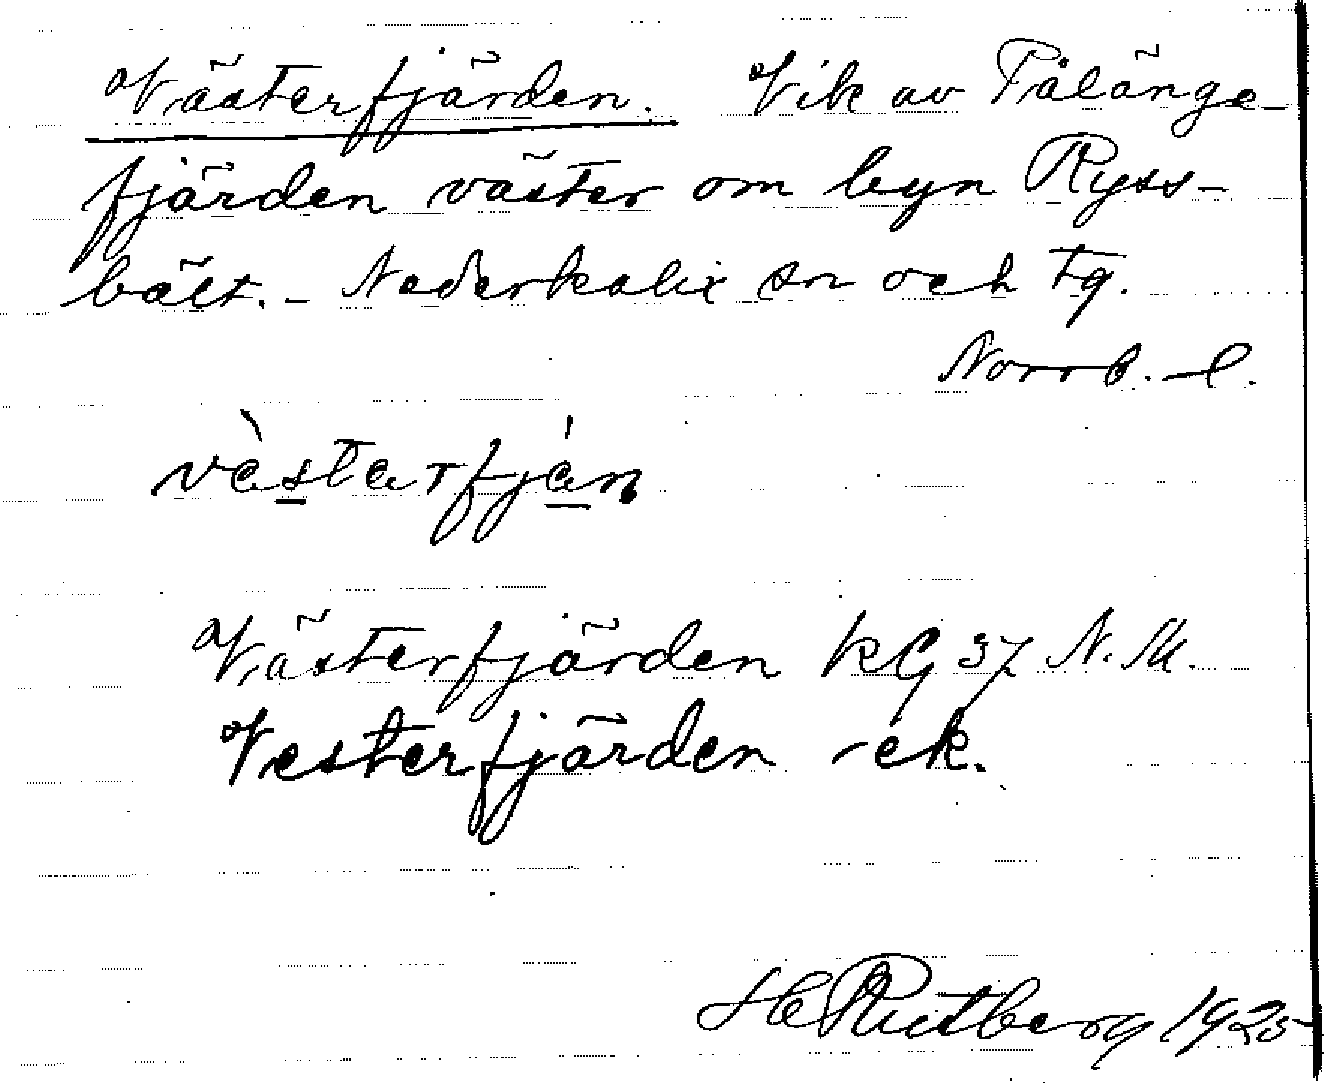 Västerfjärden. Vik av Pålänge-
fjärden väster om byn Ryss-
bält. - Nederkalix sn och tg.
Norrb. l.
vèstarfján
Västerfjärden kG 37 N. M.
Vesterfjärden -ek.
H Rutberg 1925